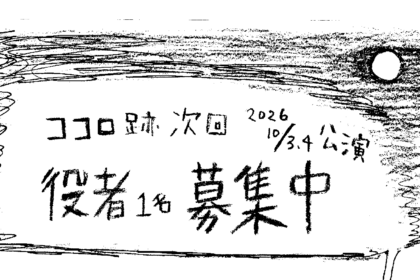 ココロ跡 次回 2026 10/3.4 公演
役者1名 募集中